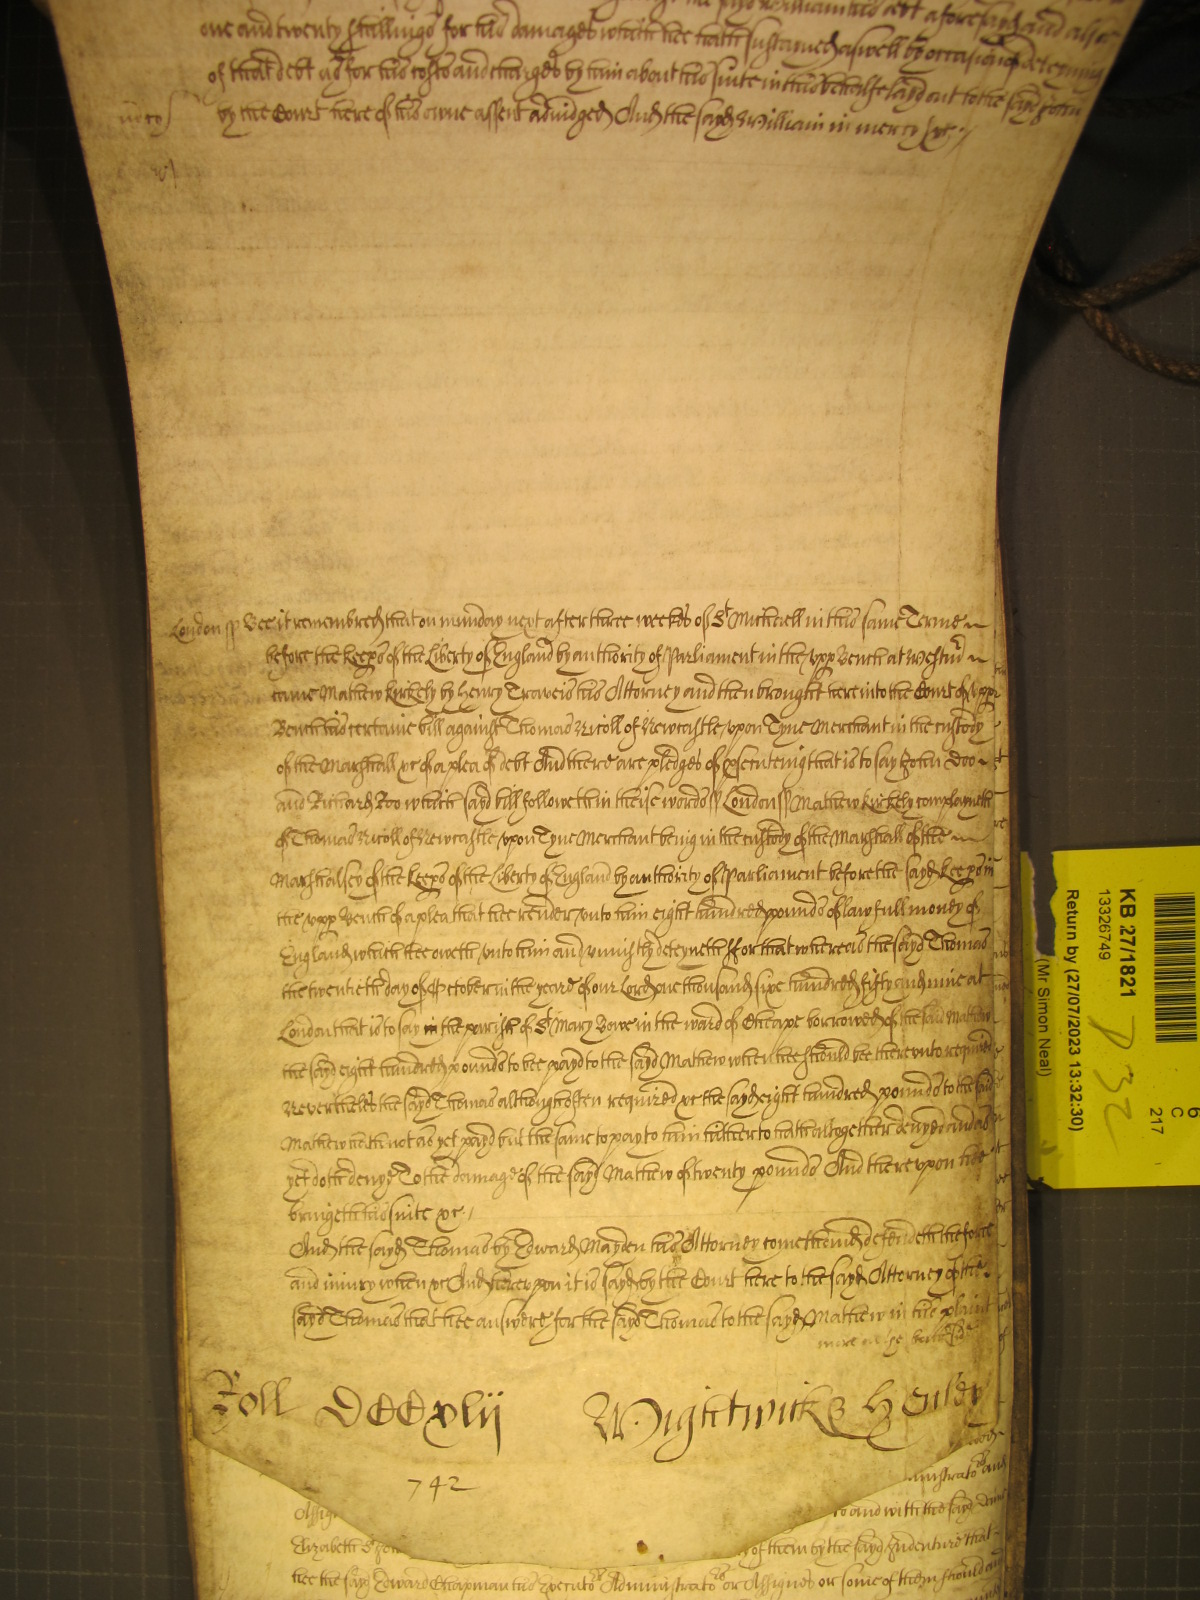 one and twenty shillings for his damages which hee hath susteyned aswell by occasion of deteyning
of that debt as for his costs and charges by him about his suite in this behalfe layd out to the sayd John
by the Court here of his owne assent adiudged And the sayd William in mercy &c
London ss Bee it remembred that on munday next after three weekes of St Michaell in this same Terme
before the keeps of the Liberty of England by authority of Parliament in the upp Bench at Westmr
came Mathew Kirkely by Henry Travers his Attorney and then brought here into the Court of upp
Bench his certaine bill against Thomas Nicoll of Newcastle upon Tyne Merchant in the custody
of the Marshall &c of a plea of debt And there are pledges of psecuteing that is to say John Doo
and Richard Roo which sayd bill followeth in theise words ss London ss Mathew Kirkely complayneth
of Thomas Nicoll of Newcastle upon Tyne Merchant being in the custody of the Marshall of the
Marshalsey of the keeps of the Liberty of England by authority of Parliament before the sayd keeps in
the upp Bench of a plea that hee render unto him eight hundred pounds of lawfull money of
England which hee oweth unto him and uniustly deteyneth ffor that whereas the sayd Thomas
the twentieth day of October in the yeare of our Lord one thousand six hundred fifty and nine at
London that is to say in the parish of St Mary Bowe in the ward of Cheape borrowed of the said Mathew
the sayd eight hundred pounds to bee payd to the sayd Mathew when hee should bee thereunto required
Neverthelès the sayd Thomas although often required &c the sayd eight hundred pounds to the said
Mathew hath not as yet payd but the same to pay to him hitherto hath altogether denyed and as
yet doth denye To the damage of the sayd Mathew of twenty pounds And thereupon hee
bringeth his suite &c
And the sayd Thomas by Edward Mayden his Attorney cometh and defendeth the force
and iniury when &c And thereupon it is sayd by the Court here to the sayd Attorney of the
sayd Thomas that hee answere for the sayd Thomas to the sayd Mathew in this plaint
Roll DCCxlij Wightwick & Henley
742
Elizabeth of them by the sayd Indenture that
hee the sayd Edward Chapman his Executors Administrators or Assignes or some of them should
KB 27/1821
13326749
Return by (27/07/2023 13:32:30)
(Mr Simon Neal)
C
217
P 32